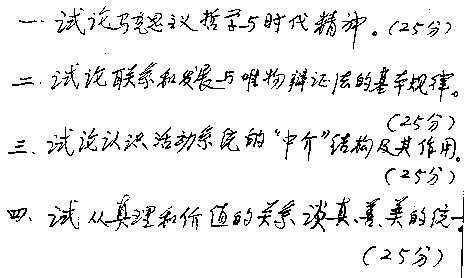 一. 试论马克思主义哲学与时代精神。(25分)
二. 试论联系和发展与唯物辩证法的基本规律。
(25分)
三. 试论认识活动系统的“中介”结构及其作用。
(25分)
四. 试从真理和价值的关系谈真、善、美的统一
(25分)